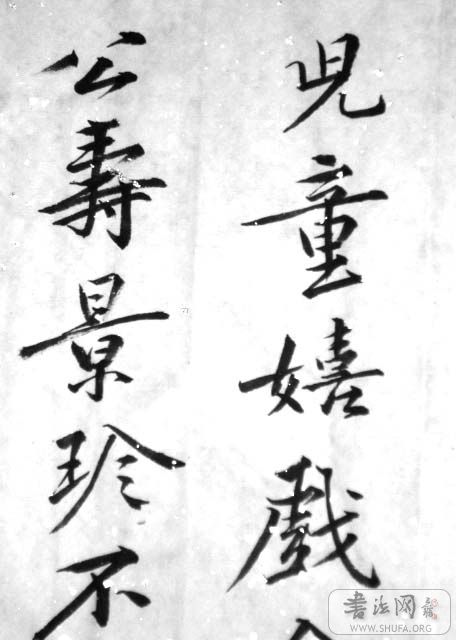 兒童嬉戲
公壽景珍不
書法网
WWW.SHUFA.ORG